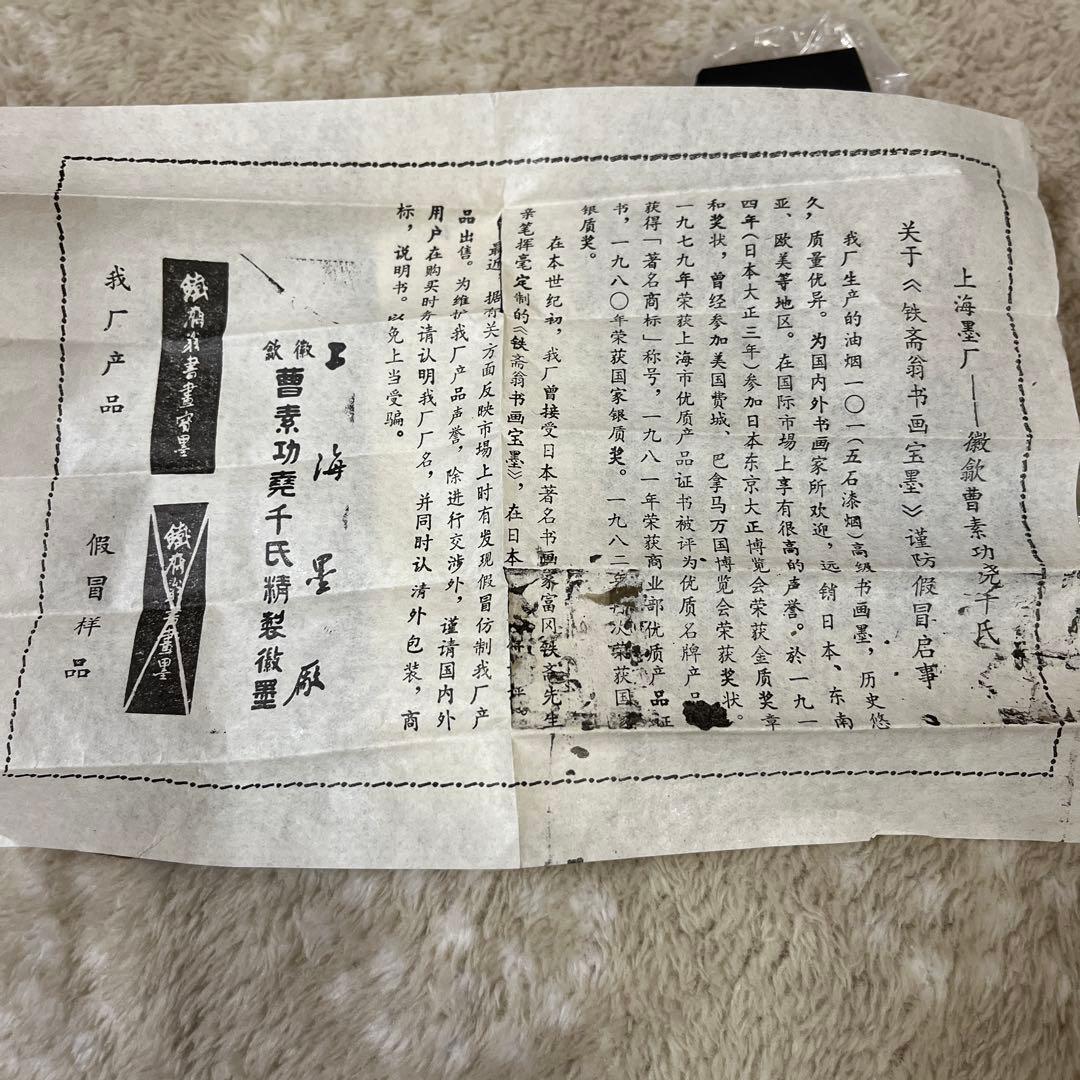 上海墨厂——徽歙曹素功尧千氏
关于《铁斋翁书画宝墨》谨防假冒启事
我厂生产的油烟一〇一(五石漆烟)高级书画墨，历史悠
久，质量优异。为国内外书画家所欢迎，远销日本、东南
亚、欧美等地区。在国际市场上享有很高的声誉。於一九一
四年(日本大正三年)参加日本东京大正博览会荣获金质奖章
和奖状，曾经参加美国费城、巴拿马万国博览会荣获奖状。
一九七九年荣获上海市优质产品证书被评为优质名牌产品
获得「著名商标」称号，一九八一年荣获商业部优质产品证
书，一九八〇年荣获国家银质奖。一九八二年 次荣获国
银质奖。
在本世纪初，我厂曾接受日本著名书画家富冈铁斋先生
亲笔挥毫定制的《铁斋翁书画宝墨》，在日本 评。
最近，据有关方面反映市场上时有发现假冒仿制我厂产
品出售。为维护我厂产品声誉，除进行交涉外，谨请国内外
用户在购买时务请认明我厂厂名，并同时认清外包装，商
标，说明书。以免上当受骗。
上海墨厂
徽歙
曹素功堯千氏精製徽墨
鐵斋翁書畫寳墨
鐵斋翁書畫墨
我厂产品
假冒样品